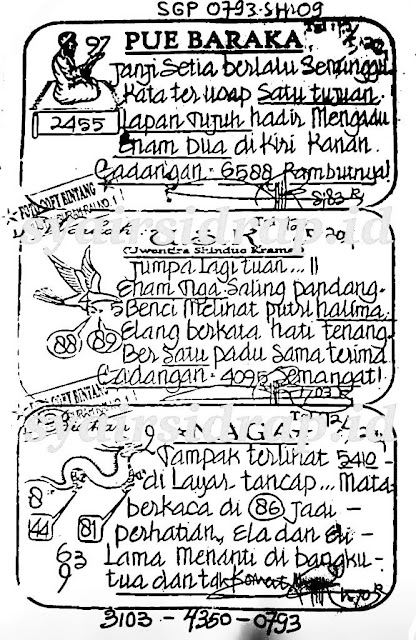 SGP 0793-SH:09
97
PUE BARAKA
Janji Setia berlalu Seminggu
Kata terucap Satu tujuan.
2455
Lapan Tujuh hadir Mengadu
Enam Dua di Kiri Kanan.
Cadangan - 6588 Rambutnya!
FOTO SOFT BINTANG
(Jwendra Shinduo Krama)
Jumpa lagi tuan... !!
Enam Tiga Saling pandang.
5 Benci Melihat putri halima.
88 89
Elang berkata hati tenang.
Ber Satu padu Sama terima
Cadangan - 4095 Semangat!
syairsidrap.id
SOFT BINTANG
NAGA
9
Tampak terlihat 5410 -
di Layar tancap... Mata-
8
berkaca di 86 Jadi -
44 81
perhatian, Ela dan Eli -
63
Lama Menanti di bangku -
9
tua dan tak
3103 - 4350 - 0793